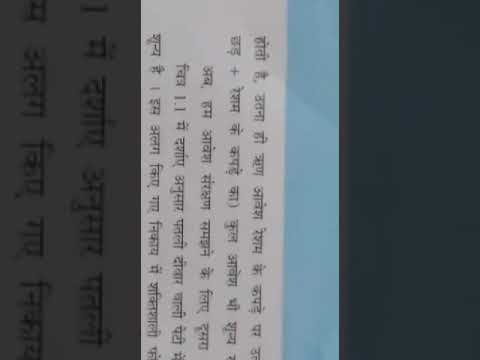 होता है, उतना ही ऋण आवेश रेशम के कपड़े पर
छड़ + रेशम के कपड़े का) कुल आवेश भी शून्य
अब, हम आवेश संरक्षण समझने के लिए दूसरा
चित्र 1.1 में दर्शाए अनुसार पतली दीवार वाली पेटी में
शून्य है । इस अलग किए गए निकाय में शक्तिशाली